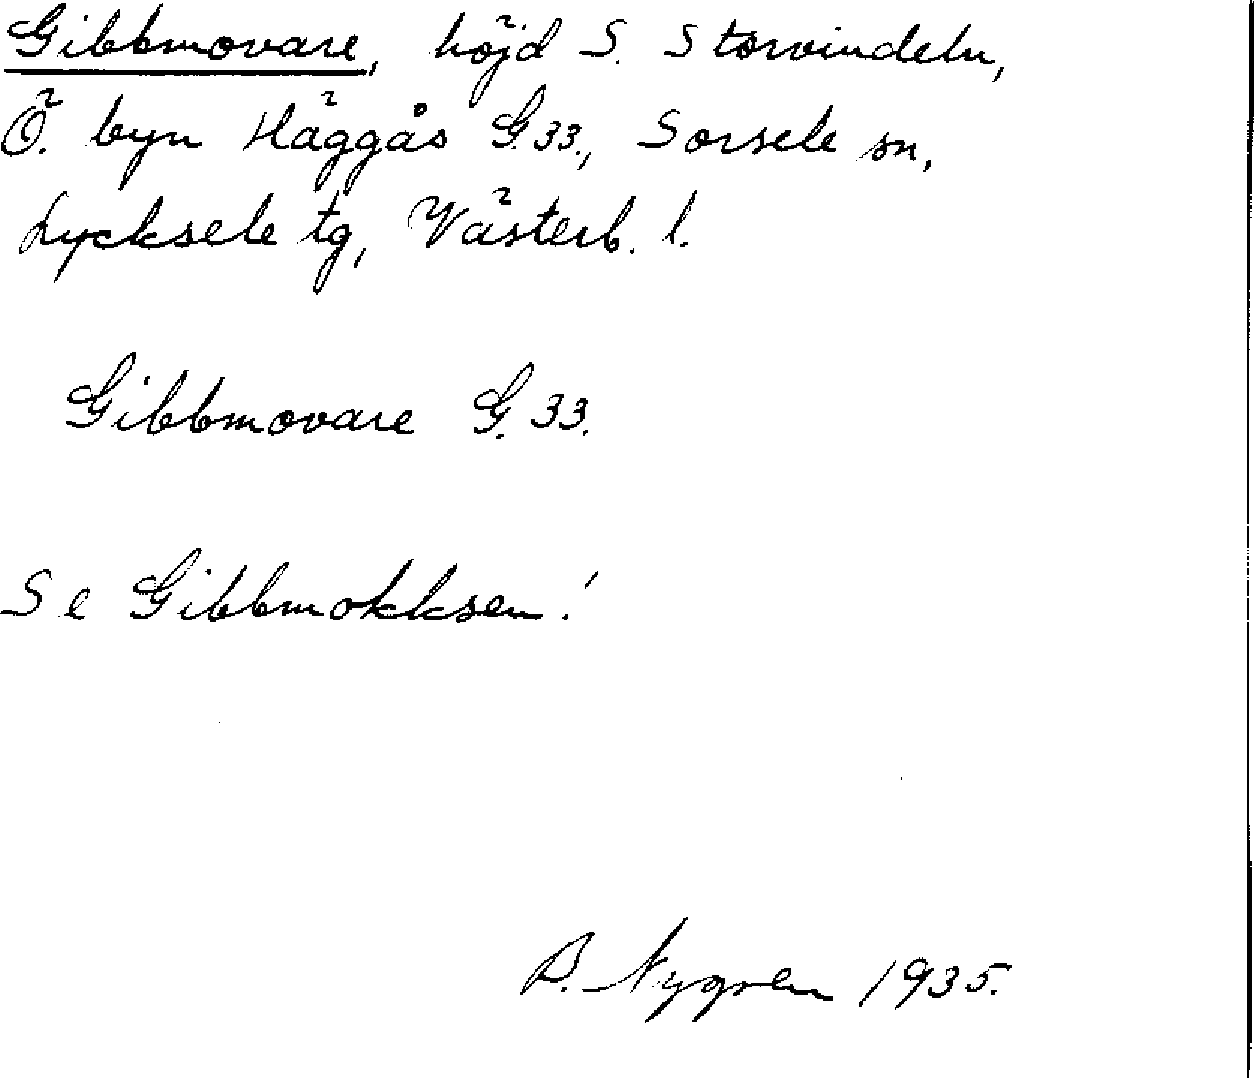 Gibbmovare, höjd S. Storvindeln,
Ö. byn Häggås G.33., Sorsele sn,
Lycksele tg, Västerb. l.
Gibbmovare G. 33.
Se Gibbmokksen!
B. Nygren 1935.